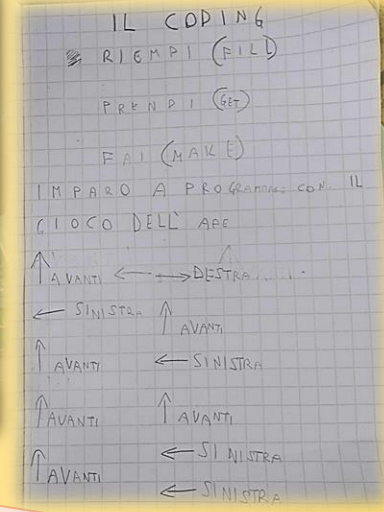 IL CODING
RIEMPI (FILL)
PRENDI (GET)
FAI (MAKE)
IMPARO A PROGRAMMARE CON IL
GIOCO DELL'APE
↑ AVANTI ← → DESTRA
← SINISTRA ↑ AVANTI
↑ AVANTI ← SINISTRA
↑ AVANTI ↑ AVANTI
↑ AVANTI ← SINISTRA
← SINISTRA